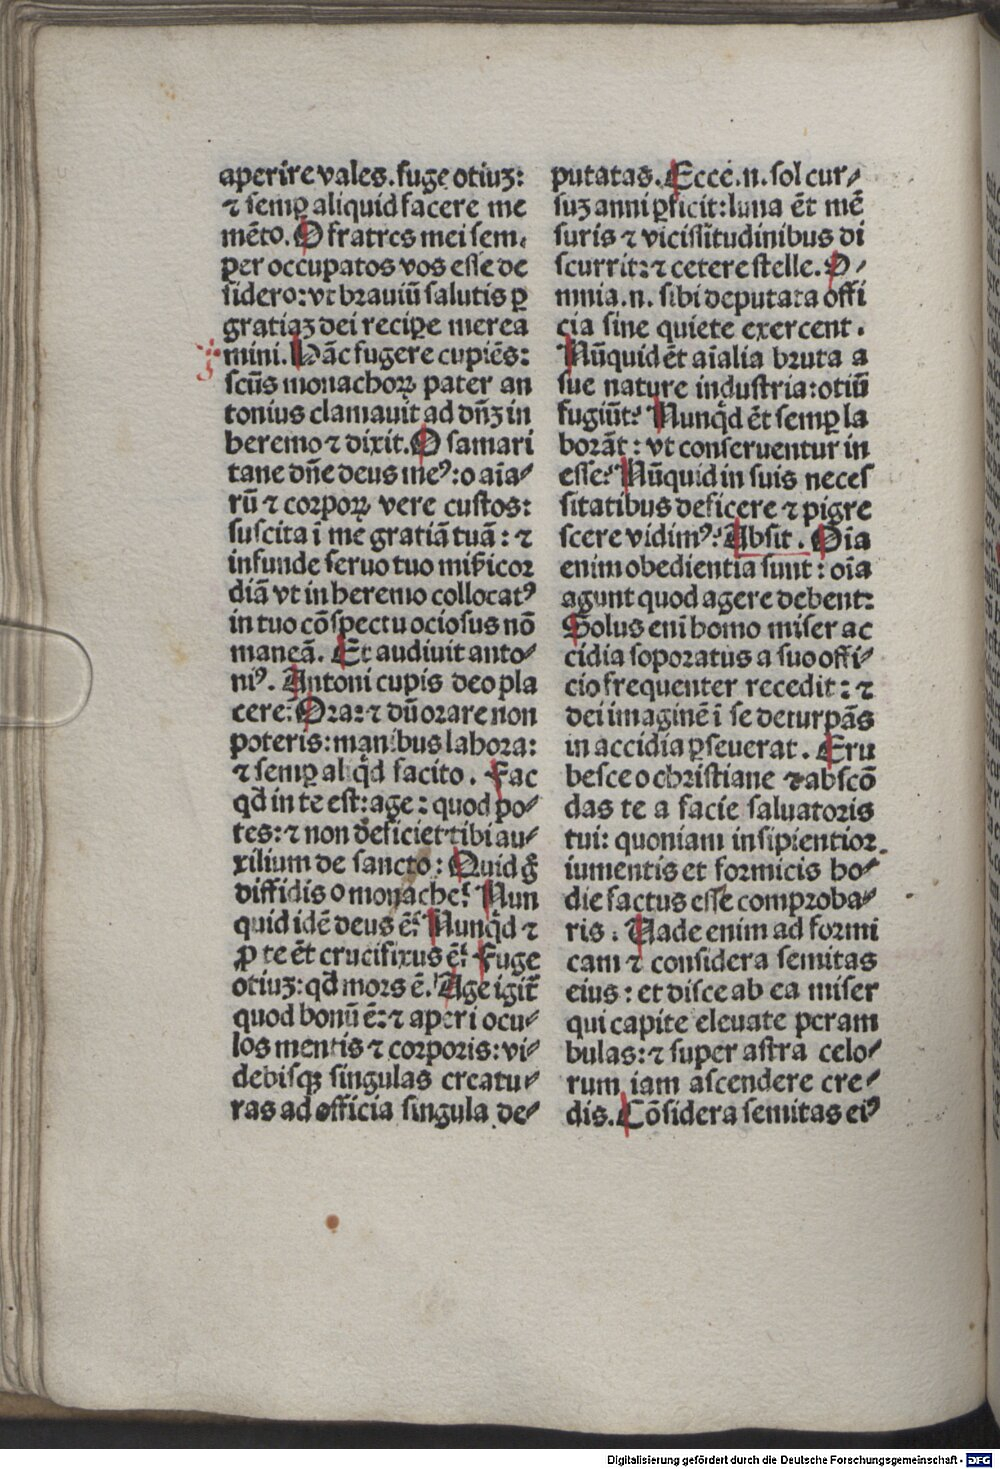 aperire vales. fuge otiuʒ:
⁊ semꝑ aliquid facere me
mēto. O fratres mei sem-
per occupatos vos esse de
sidero: vt brauiū salutis ꝑ
gratiaʒ dei recipe merea
mini. Hāc fugere cupiēs:
scūs monachoꝝ pater an
tonius clamauit ad dn̄ʒ in
heremo ⁊ dixit. O samari
tane dn̄e deus meꝰ: o aīa⸗
rū ⁊ corpoꝝ vere custos:
suscita ī me gratiā tuā: ⁊
infunde seruo tuo mīsicor
diā vt in heremo collocatꝰ
in tuo cōspectu ociosus nō
maneā. Et audiuit anto⸗
niꝰ. Antoni cupis deo pla
cere: Ora: ⁊ dū orare non
poteris: manibus labora:
⁊ semꝑ aliq̄d facito. Fac
qd̄ in te est: age: quod po⸗
tes: ⁊ non deficiet tibi au⸗
xilium de sancto: Quid g̊
diffidis o monache? Nun
quid idē deus ē? Nunq̄d ⁊
ꝓ te ēt crucifixus ē? Fuge
otiuʒ: qd̄ mors ē. Age igit̄
quod bonū ē: ⁊ aperi ocu⸗
los mentis ⁊ corporis: vi⸗
debisqꝫ singulas creatu⸗
ras ad officia singula de⸗
putatas. Ecce .n. sol cur⸗
suʒ anni ꝑficit: luna ēt mē
suris ⁊ vicissitudinibus di
scurrit: ⁊ cetere stelle. O⸗
mnia .n. sibi deputata offi
cia sine quiete exercent.
Nūquid ēt aīalia bruta a
sue nature industria: otiū
fugiūt? Nunq̄d ēt semꝑ la
borāt: vt conseruentur in
esse? Nūquid in suis neces
sitatibus deficere ⁊ pigre
scere vidimꝰ? Absit. Oīa
enim obedientia sunt: oīa
agunt quod agere debent:
Solus enī homo miser ac
cidia soporatus a suo offi⸗
cio frequenter recedit: ⁊
dei imaginē ī se deturpās
in accidia ꝑseuerat. Eru
besce o christiane ⁊ abscō
das te a facie saluatoris
tui: quoniam insipientior
iumentis et formicis ho⸗
die factus esse comproba⸗
ris. Vade enim ad formi
cam ⁊ considera semitas
eius: et disce ab ea miser
qui capite eleuate peram
bulas: ⁊ super astra celo⸗
rum iam ascendere cre⸗
dis. Cōsidera semitas eiꝰ
Digitalisierung gefördert durch die Deutsche Forschungsgemeinschaft - DFG